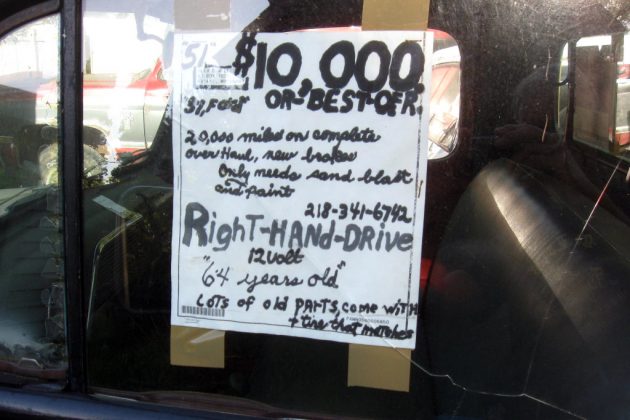 "51" $10,000.
OR-BEST-OFR.
20,000 miles on complete
over Haul, new brakes
Only needs sand blast
and paint
218-341-6742
RighT-HANd-DRIVE
12Volt
"64 years old"
LOTS of old PARTS, come WITH
+ tire that matches